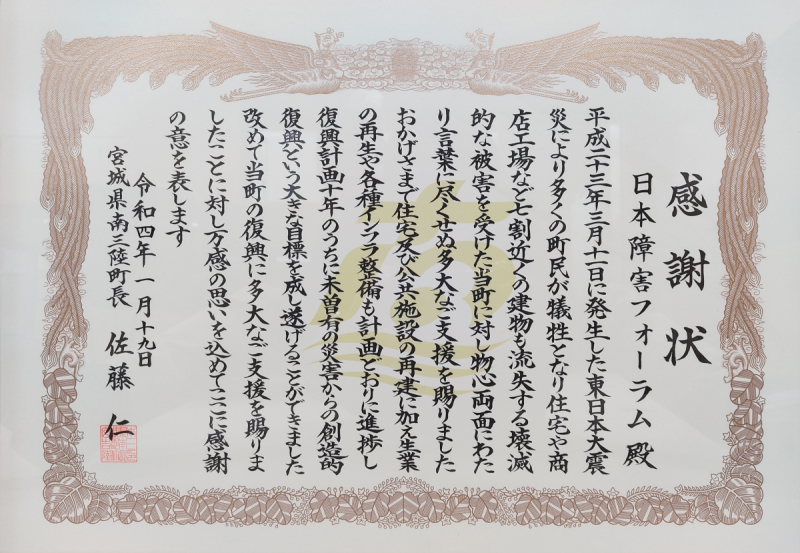 感謝状
日本障害フォーラム殿
平成二十三年三月十一日に発生した東日本大震
災により多くの町民が犠牲となり住宅や商
店工場など七割近くの建物も流失する壊滅
的な被害を受けた当町に対し物心両面にわた
り言葉に尽くせぬ多大なご支援を賜りました
おかげさまで住宅及び公共施設の再建に加え生業
の再生や各種インフラ整備も計画どおりに進捗し
復興計画十年のうちに未曽有の災害からの創造的
復興という大きな目標を成し遂げることができました
改めて当町の復興に多大なご支援を賜りま
したことに対し万感の思いを込めてここに感謝
の意を表します
令和四年一月十九日
宮城県南三陸町長 佐藤仁